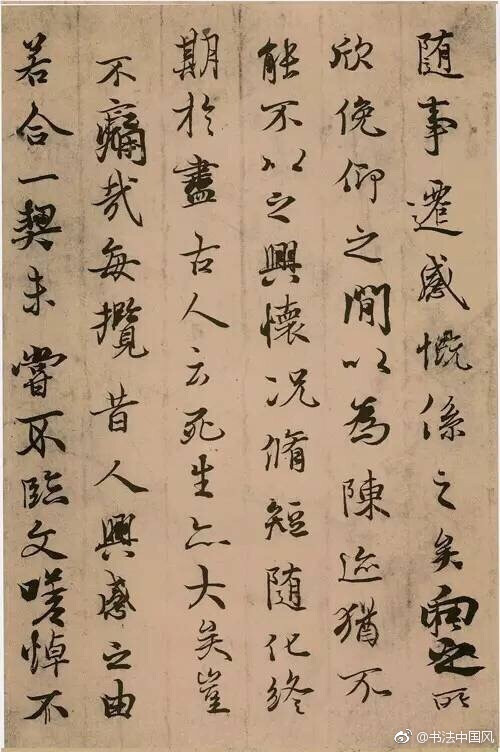 随事遷感慨係之矣向之所
欣俛仰之閒以為陳迹猶不
能不以之興懷況脩短随化終
期於盡古人云死生亦大矣豈
不痛哉每攬昔人興感之由
若合一契未嘗不臨文嗟悼不
@书法中国风